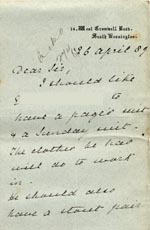 14, West Cromwell Road,
South Kensington.
26 April 89
Dear Sir,
I should like
to
have a page's suit
& a Sunday suit.
The clothes he has
will do to work
in.
He should also
have a stout pair